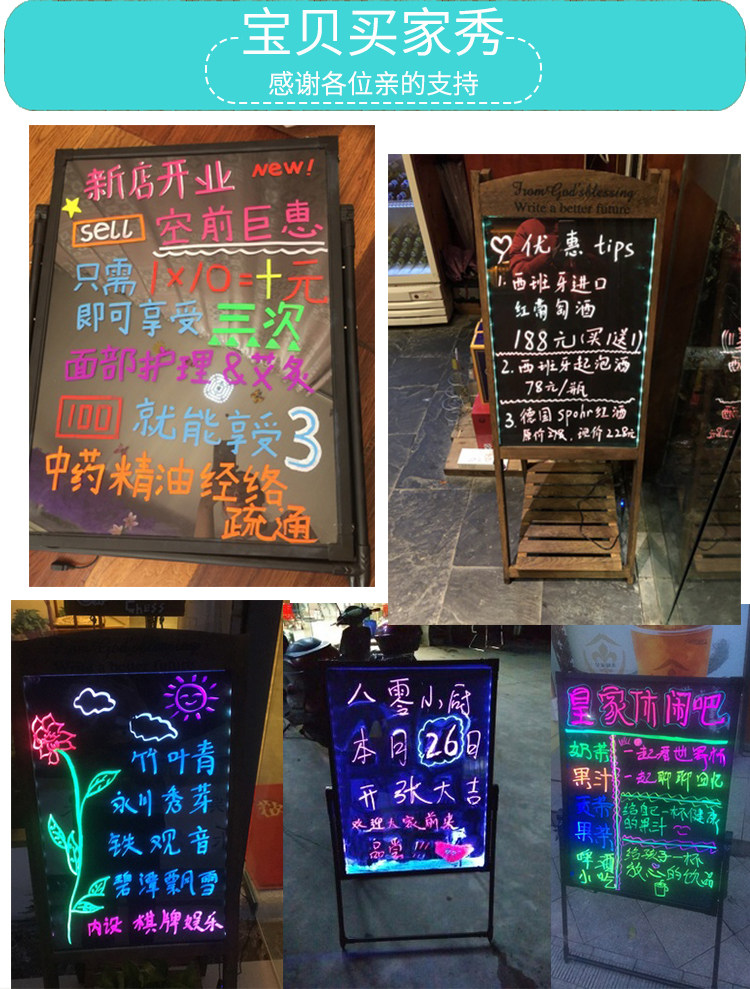 宝贝买家秀
感谢各位亲的支持
新店开业 NEW!
sell 空前巨惠
只需1×10=十元
即可享受三次
面部护理&艾灸
100 就能享受3
中药精油经络
疏通
From God's blessing
Write a better future
优惠 tips
1.西班牙进口
红葡萄酒
188元(买1送1)
2.西班牙起泡酒
78元/瓶
3.德国spohr红酒
原价378,现价228元
Chess
竹叶青
永川秀芽
铁观音
碧潭飘雪
内设 棋牌娱乐
八零小厨
本月26日
开张大吉
欢迎大家前来
品尝!!!
皇家休闲吧
奶茶 一起看世界杯
果汁 一起聊聊回忆
果茶
给自己一杯健康
的果汁
啤酒
小吃
给孩子一杯
放心的饮品